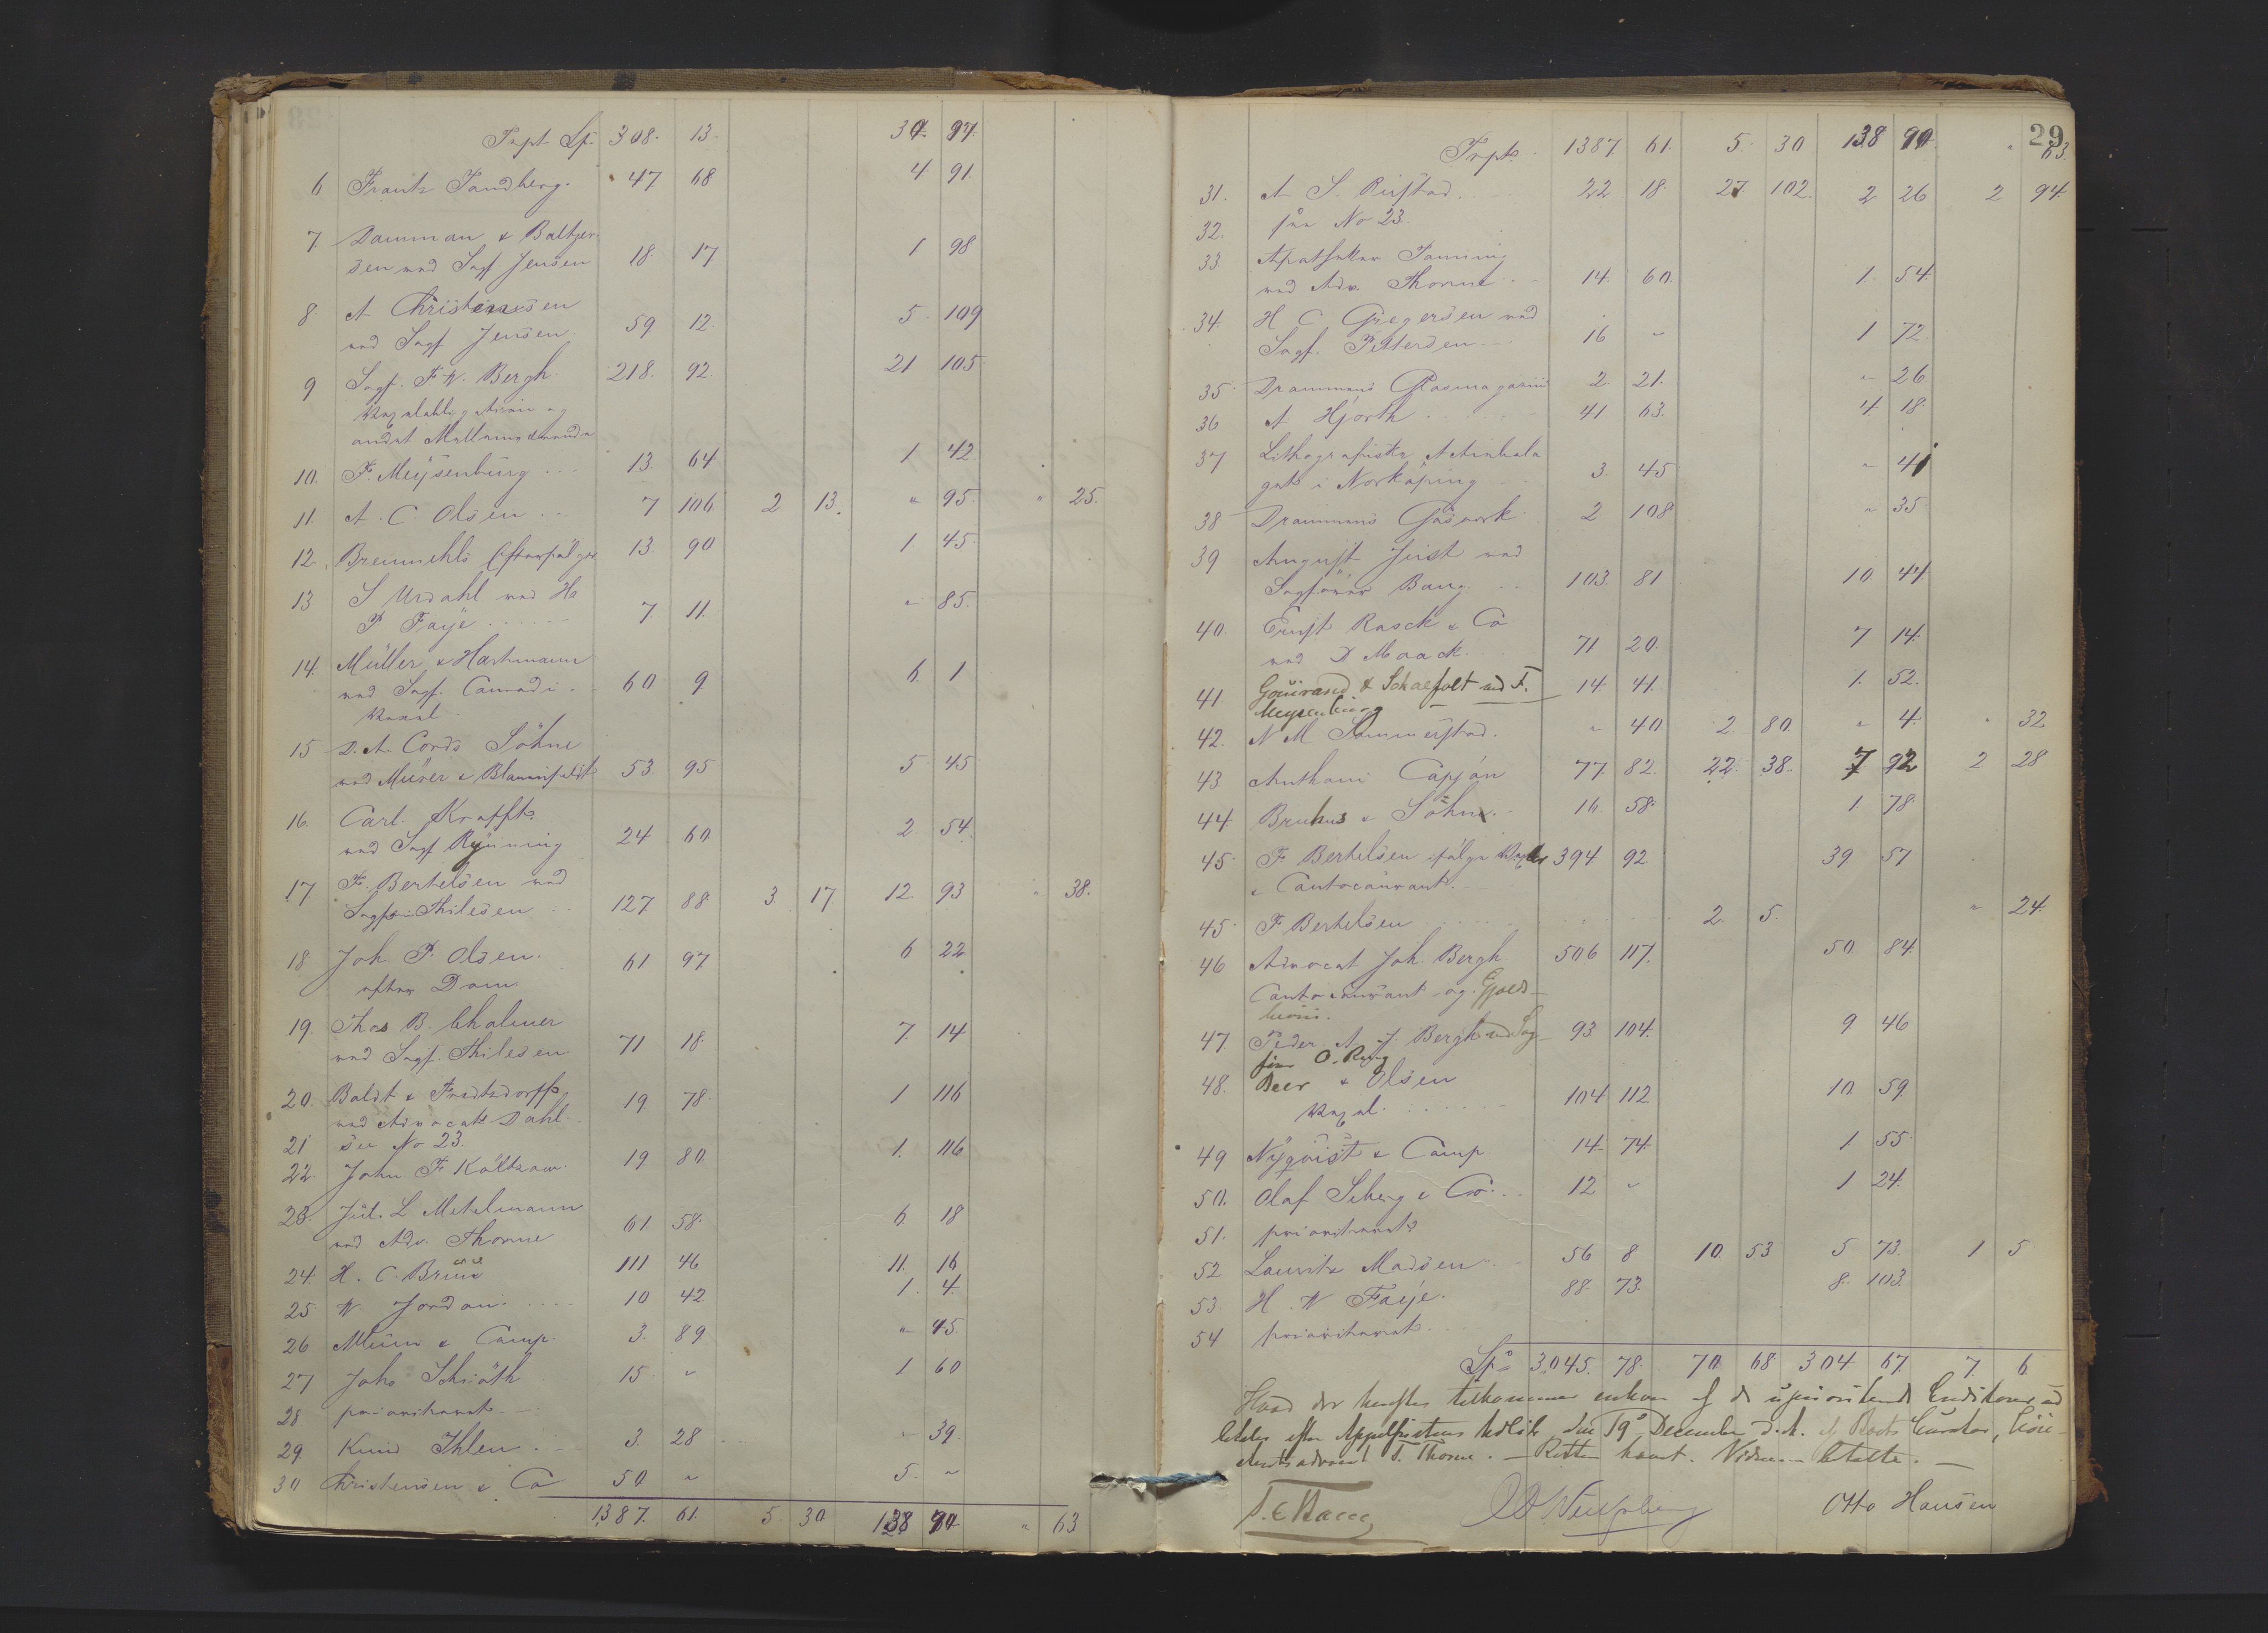 Trpt Sp. 308. 13. 30. 97.
6 Frantz Sandberg. 47 68 4 91.
7 Damman & Baltzer-
sen ved Sagf Jensen 18 17 1 98
8 A Christensen
ved Sagf Jensen. 59 12. 5 109
9 Sagf. F W. Bergh 218. 92 21 105
andet Mellemværende
10. F. Meysenburg 13. 64 1 42.
11. A. C. Olsen 7 106 2 13. " 95. " 25.
12. Bremmehls Efterfølger 13 90 1 45.
13 S Urdahl ved H
P Faye 7 11. " 85.
14. Müller & Hartmann
ved Sagf. Conradi 60 9. 6. 1
Vexel
15 D. A. Cords Söhne
ved Mürer & 53 95 5 45
16. Carl Krafft
ved Sagf Rynning 24 60 2 54
17 F. Bertelsen ved
Sagfører Thilesen 127 88 3. 17 12. 93 " 38.
18 Joh. P. Olsen. 61 97 6 22
efter Dom.
19. Thos B. Chalmer
ved Sagf. Thilesen 71 18. 7. 14
20. Boldt & Fredtsdorff
ved Advocat Dahl. 19. 78. 1 116
21 see No 23.
22. John F Költzow. 19 80 1. 116
23. Jul. L Metelmann
ved Adv. Thorne 61. 58. 6. 18
24. H. C. Bruu 111 46 11. 16
25. W. Jordan. 10 42. 1. 4.
26 Mum & Comp. 3. 89 " 45.
27 Johs Schröth 15 " 1 60
28 prioriteret
29. Knud Ihlen. 3. 28 " 39.
30 Christensen & Co 50 " 5. "
1387. 61. 5. 30 138 90. " 63
29
Trpt 1387. 61. 5. 30 138 90 " 63.
31. A S. Rustad 22 18. 27 102. 2 26 2 94.
32. see No 23.
33 Apotheker Tanning
ved Adv. Thorne 14. 60. 1. 54.
34. H C Gregersen ved
Sagf. Pettersen 16 " 1 72.
35. Drammens Glasmagasin 2. 21. " 26.
36 A. Hjorth 41 63. 4. 18.
37 Lithografiske Actiebola
get i Norköping 3. 45 " 41
38 Drammens Gasverk 2 108 " 35
39 August Just ved
Sagfører Bang. 103. 81 10 44
40. Ernst Rasck & Co
ved D Maack. 71 20. 7 14.
41 Gouirand & ved F. 14. 41. 1. 52.
Meysenburg
42. N M Sommerstad. " 40. 2. 80. " 4. " 32
43 Anthoni Capján 77. 82. 22. 38. 7 92 2. 28
44 Bruhns & Söhne. 16. 58. 1. 78.
45. F Bertelsen ifølge Vexler 394 92 39 57
& Contocourant.
45. F Bertelsen 2. 5. " 24.
46 Advocat Joh. Bergh 506 117. 50. 84.
Contocourant og Gjelds-
bevis.
47. Peder A J Bergh ved Sag- 93 104. 9. 46
fører O. Ryng
48. Beer & Olsen
Vexel. 104 112 10. 59.
49 Nyqvist & Comp 14 74. 1 55.
50. Olaf Seberg & Co. 12 " 1 24.
51. prioriteret
52 Lauritz Madsen 56 8 10. 53 5 73. 1 5
53. H. W Faye. 88. 73. 8. 103.
54 prioriteret
Sp. 3045. 78. 70 68 304 67. 7. 6.
Hvad der herefter tilkommer enhver af de uprioriterede Creditorer ud
betales efter Appelfristens Udløb den 19de December d. A. af Boets Curator,
advocat T. Thorne. — Retten hævet. Vidnerne betalte. —
Otto Hansen